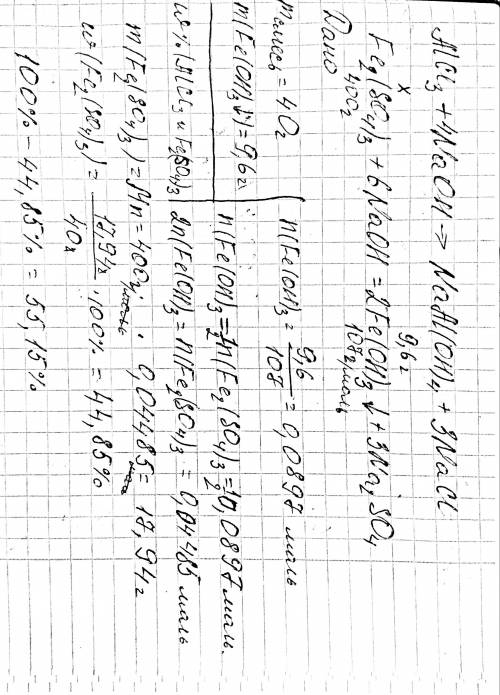 AlCl₃ + 4NaOH → NaAl(OH)₄ + 3NaCl
x 9,6г
Fe₂(SO₄)₃ + 6NaOH = 2Fe(OH)₃↓ + 3Na₂SO₄
400г 108г/моль
Дано
mсмесь = 40г
m(Fe(OH)₃↓) = 9,6г
w% (AlCl₃ и Fe₂(SO₄)₃
n(Fe(OH)₃ = 9,6/108 = 0,0897 моль
n(Fe(OH)₃ = ½n(Fe₂(SO₄)₃ = ½0,0897 моль.
2n(Fe(OH)₃ = n(Fe₂(SO₄)₃ = 0,04485 моль
m(Fe₂(SO₄)₃) = Mn = 400г/моль · 0,04485 моль = 17,94г
w(Fe₂(SO₄)₃) = 17,94г/40г · 100% = 44,85%
100% - 44,85% = 55,15%